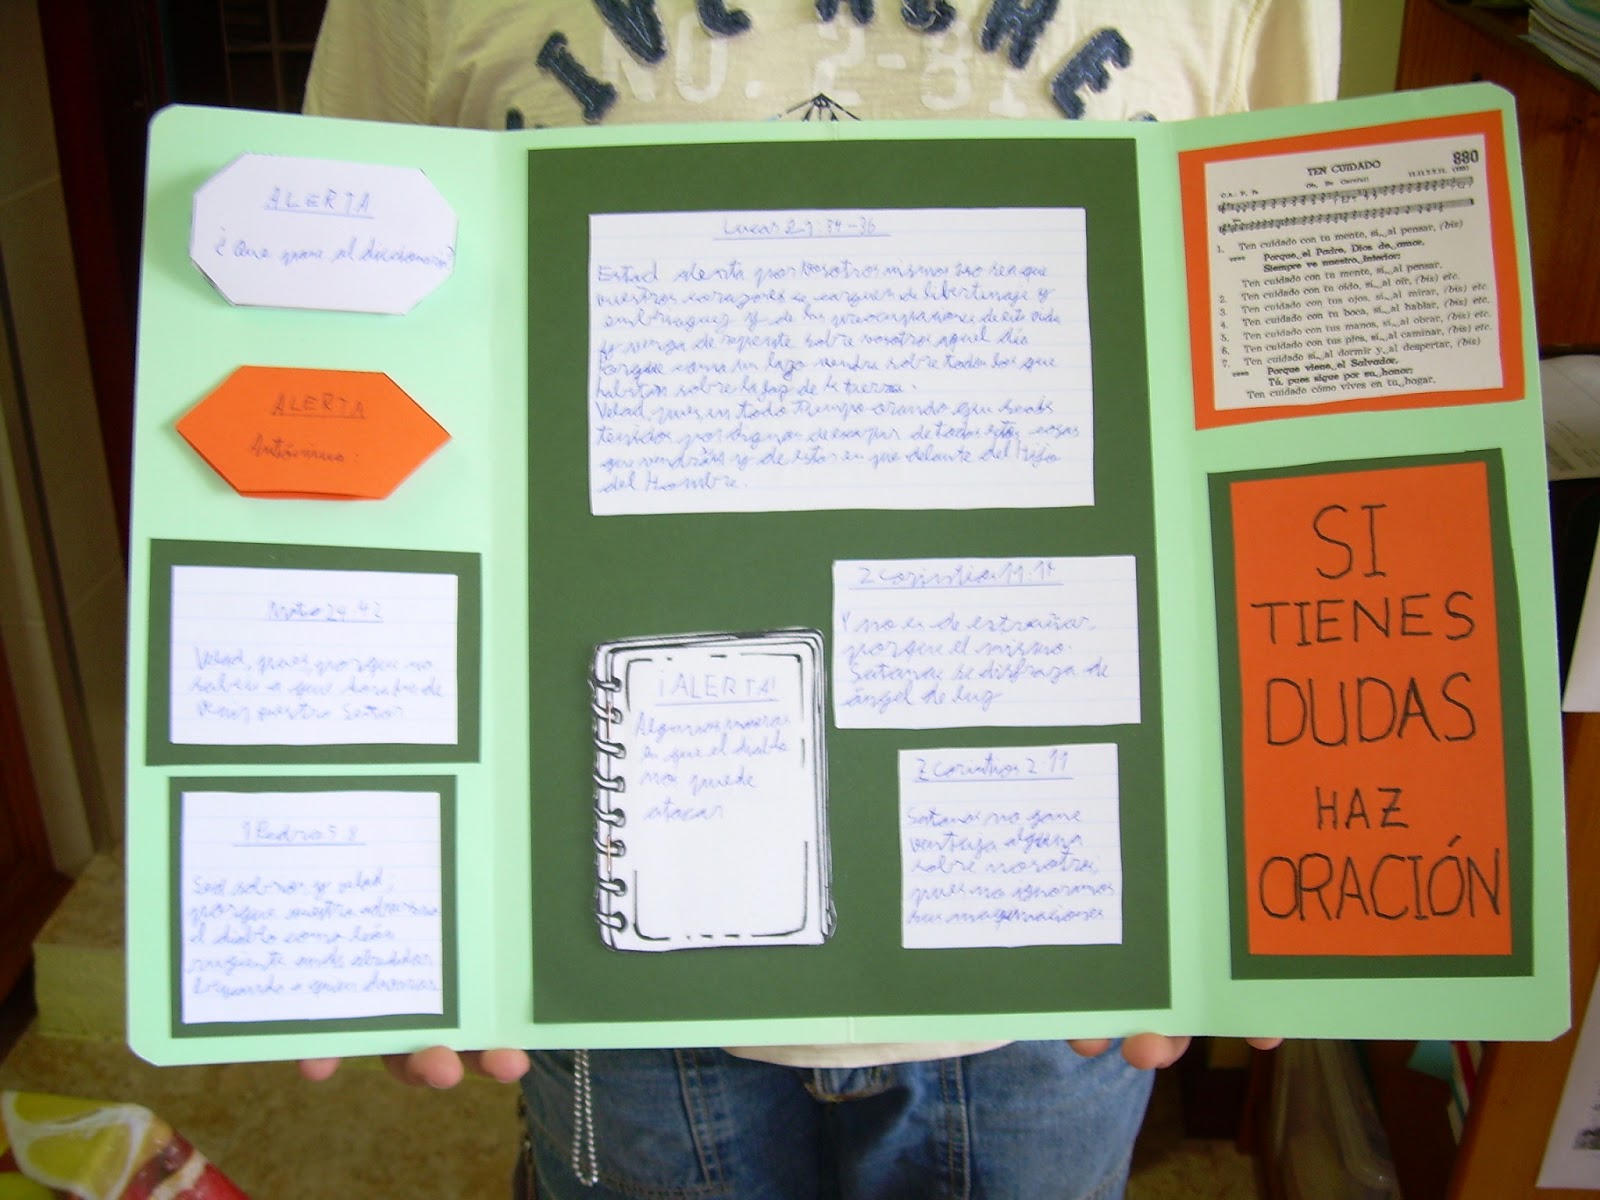 NO. 2-81
ALERTA
¿Que pone el diccionario?
ALERTA
Antónimo:
Mateo 24:42
Velad, pues porque no
sabeis a que hora ha de
venir vuestro Señor
1 Pedro 5:8
Sed sobrios y velad;
porque vuestro adversario
el diablo como león
rugiente anda alrededor
buscando a quien devorar
Lucas 21:34-36
Estad alerta por vosotros mismos no sea que
vuestros corazones se carguen de libertinaje y
embriaguez y de las preocupaciones de esta vida
y venga de repente sobre vosotros aquel día
Porque como un lazo vendra sobre todos los que
habitan sobre la faz de la tierra.
Velad, pues, en todo tiempo orando que seais
tenidos por dignos de escapar de todas estas cosas
que vendrán y de estar en pie delante del Hijo
del Hombre.
¡ALERTA!
Algunas maneras
en que el diablo
nos puede
atacar
2 Corintios 11:14
Y no es de estrañar,
porque el mismo
Satanas se disfraza de
ángel de luz
2 Corintios 2:11
Satanas no gane
ventaja alguna
sobre nosotros,
pues no ignoramos
sus maquinaciones
TEN CUIDADO
880
Oh, Be Careful!
1. Ten cuidado con tu mente, sí, al pensar, (bis)
Porque el Padre, Dios de amor,
Siempre ve nuestro interior;
Ten cuidado con tu mente, sí, al pensar.
2. Ten cuidado con tu oído, sí, al oír, (bis) etc.
3. Ten cuidado con tus ojos, sí, al mirar, (bis) etc.
4. Ten cuidado con tu boca, sí, al hablar, (bis) etc.
5. Ten cuidado con tus manos, sí, al obrar, (bis) etc.
6. Ten cuidado con tus pies, sí, al caminar, (bis) etc.
7. Ten cuidado sí, al dormir y al despertar, (bis)
Porque viene el Salvador,
Tú, pues sigue por su honor;
Ten cuidado cómo vives en tu hogar.
SI
TIENES
DUDAS
HAZ
ORACIÓN